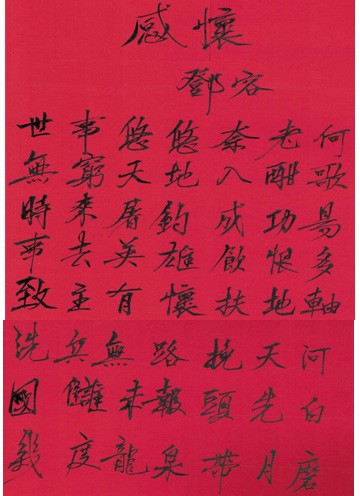 感懷
鄧容
世事悠悠奈老何
無窮天地入酣歌
時來屠釣成功易
事去英雄飲恨多
致主有懷扶地軸
洗兵無路挽天河
國讎未報頭先白
幾度龍泉帶月磨